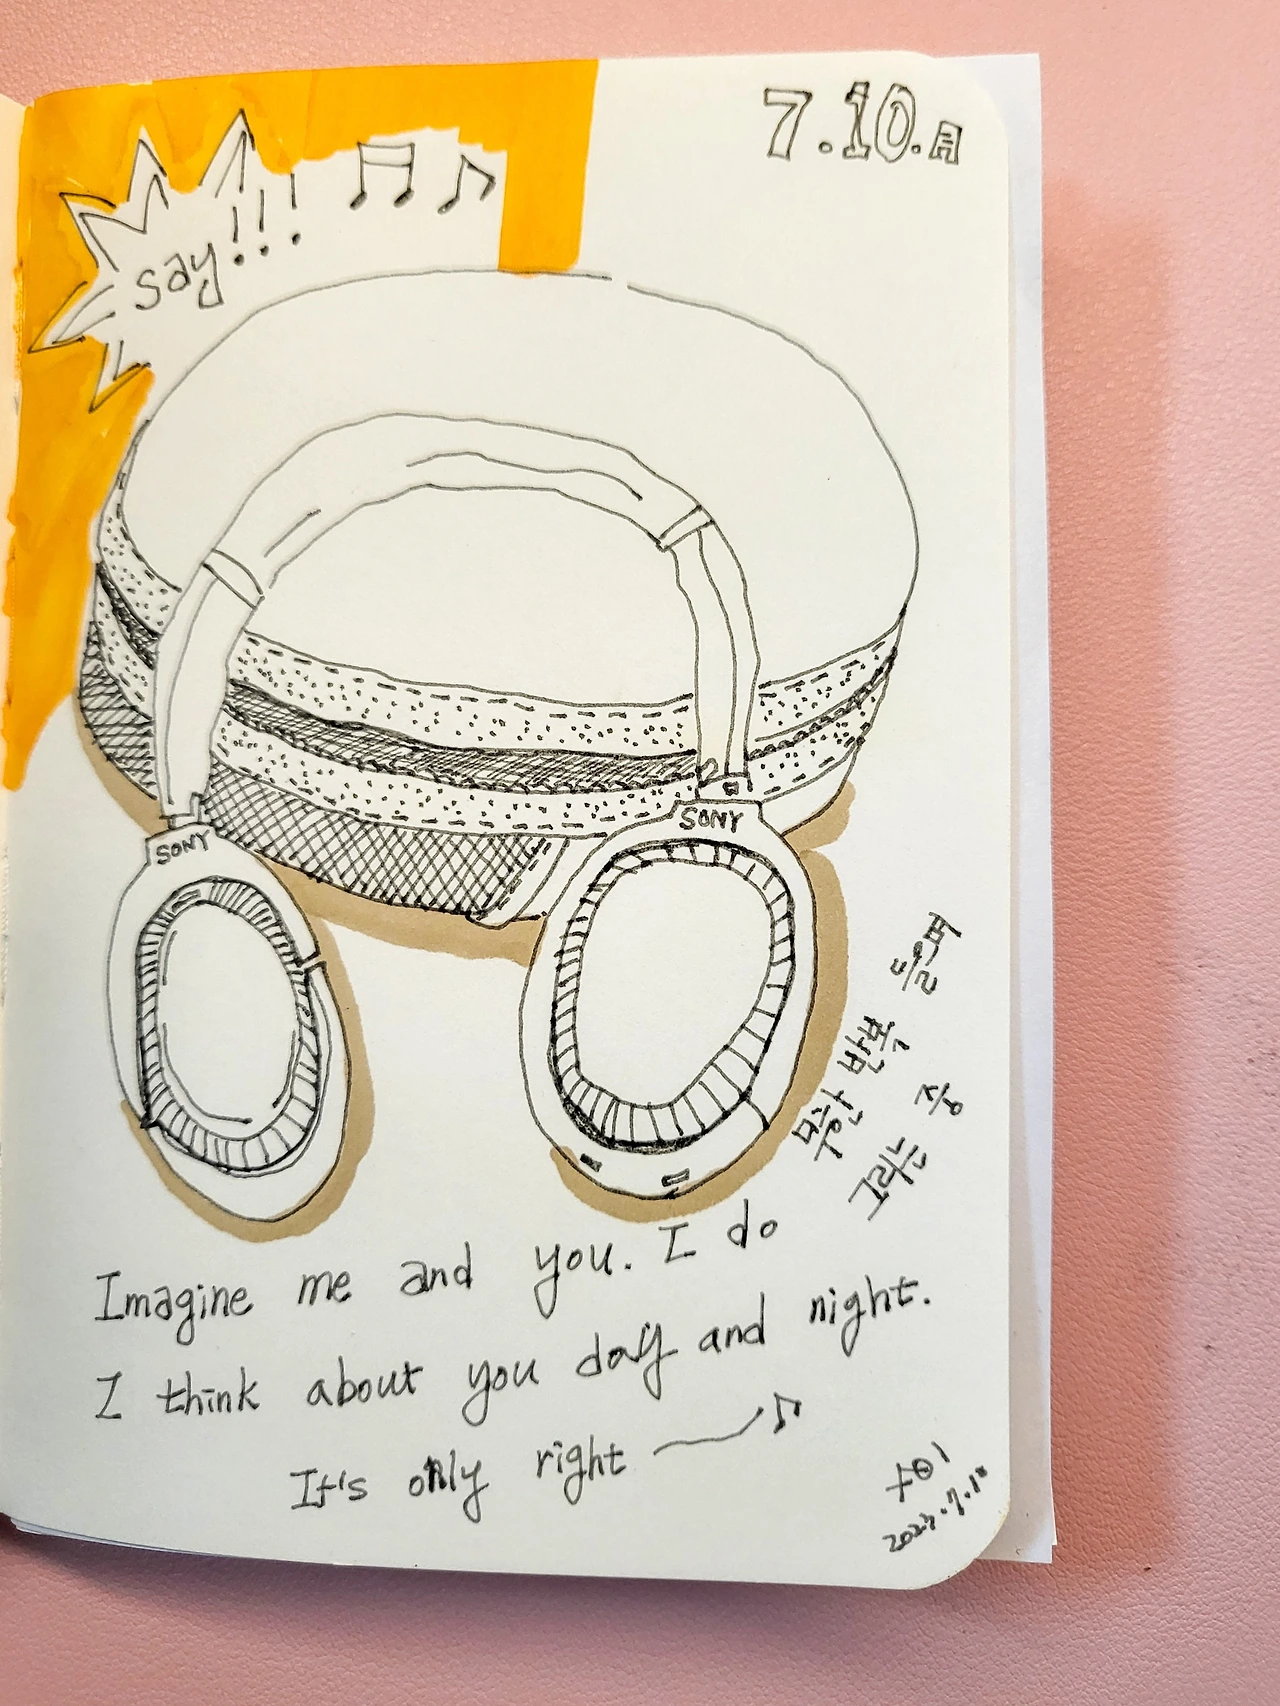 7.10.月
say!!!
SONY
SONY
무한 반복 들으며
그리는 중
Imagine me and you. I do
I think about you day and night.
It's only right
2023.7.10